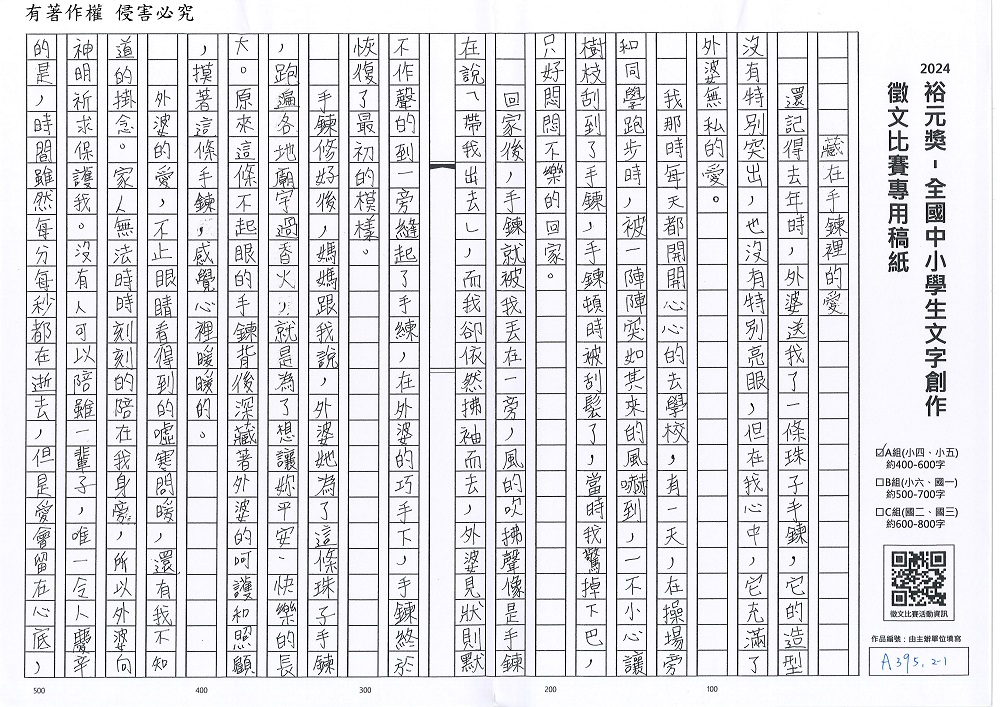 有著作權 侵害必究
2024
裕元獎-全國中小學生文字創作
徵文比賽專用稿紙
☑A組(小四、小五)
約400-600字
☐B組(小六、國一)
約500-700字
☐C組(國二、國三)
約600-800字
徵文比賽活動資訊
作品編號：由主辦單位填寫
A395.2-1
藏在手鍊裡的愛
還記得去年時，外婆送我了一條珠子手鍊，它的造型
沒有特別突出，也沒有特別亮眼，但在我心中，它充滿了
外婆無私的愛。
我那時每天都開開心心的去學校，有一天，在操場旁
和同學跑步時，被一陣陣突如其來的風嚇到，一不小心讓
樹枝刮到了手鍊，手鍊頓時被刮鬆了，當時我驚掉下巴，
只好悶悶不樂的回家。
回家後，手鍊就被我丟在一旁，風的吹拂聲像是手鍊
在說「帶我出去」，而我卻依然拂袖而去，外婆見狀則默
不作聲的到一旁縫起了手練，在外婆的巧手下，手鍊終於
恢復了最初的模樣。
手鍊修好後，媽媽跟我說，外婆她為了這條珠子手鍊
，跑遍各地廟宇過香火，就是為了想讓妳平安、快樂的長
大。原來這條不起眼的手鍊背後深藏著外婆的呵護和照顧
，摸著這條手鍊，感覺心裡暖暖的。
外婆的愛，不止眼睛看得到的噓寒問暖，還有我不知
道的掛念。家人無法時時刻刻的陪在我身旁，所以外婆向
神明祈求保護我。沒有人可以陪雖一輩子，唯一令人辛
的是，時間雖然每分每秒都在逝去，但是愛會留在心底，
100
200
300
400
500